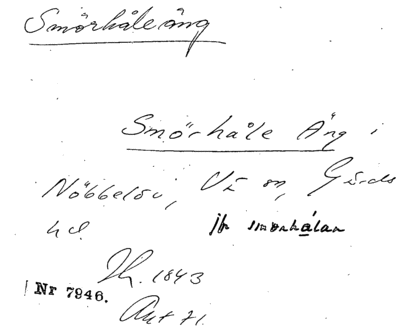 Smörhåleäng
Smörhåle Äng i
Nöbbelöv, Vä sn, Gärds
hd. jfr smörhålan
1843
Nr 7946.
Akt 71.